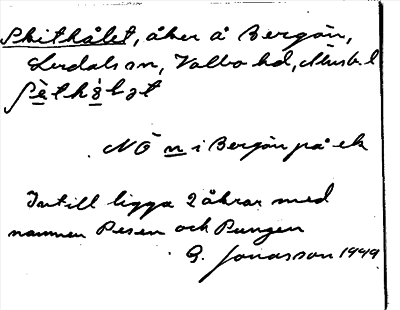 Skithålet, åker å Bergön,
Lerdals sn, Valbo hd, Älvsb. l
NÖ n i Bergön på ek
Intill ligga 2 åkrar med
namnen Pesen och Pungen
G. Jonasson 1949